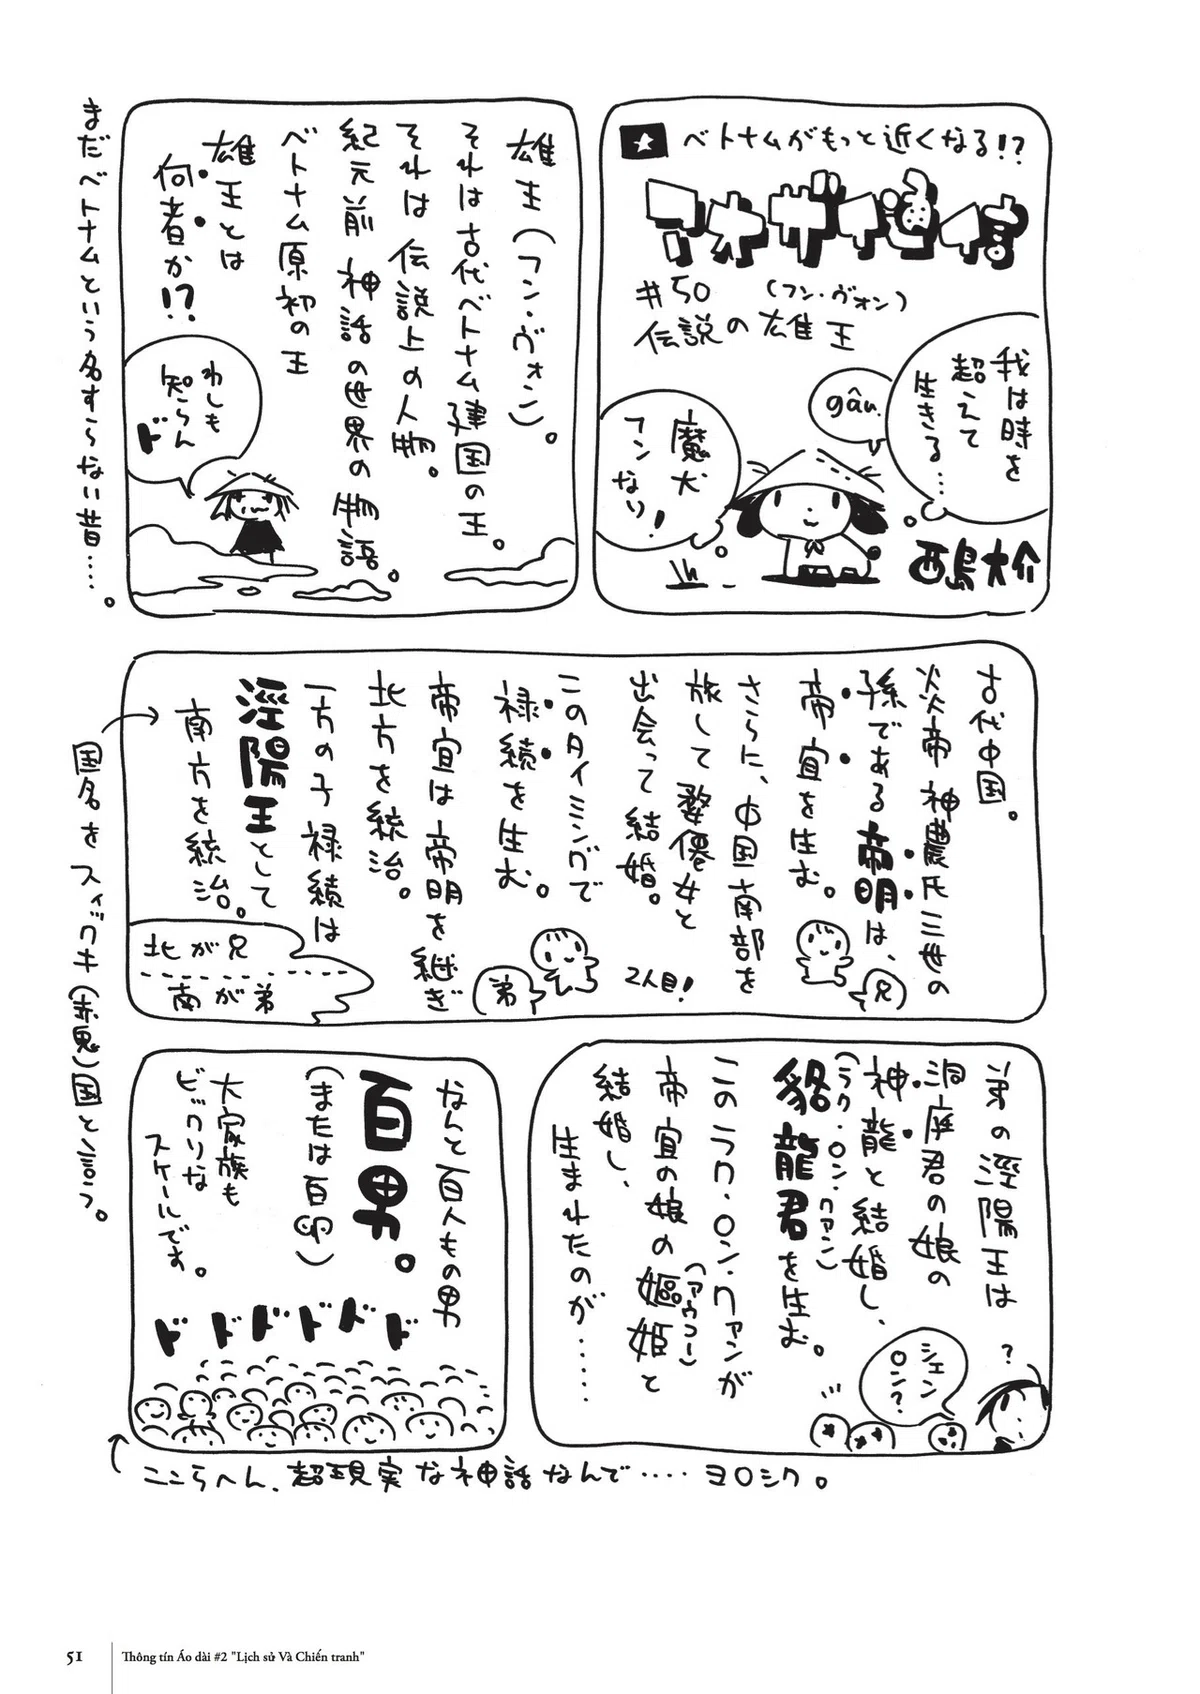 ベトナムがもっと近くなる!?
#50
伝説の雄王
(フン・ヴォン)
我は時を
超えて
生きる…
gâu.
魔犬
フン
なり!
西島大介
雄王(フン・ヴォン)。
それは古代ベトナム建国の王。
それは伝説上の人物。
紀元前 神話の世界の物語。
ベトナム原初の王
雄王とは
何者か!?
わしも
知らん
ド
まだベトナムという名すらない昔……。
古代中国。
炎帝神農氏三世の
孫である帝明は、
帝宜を生む。
兄
さらに、中国南部を
旅して婺僊女と
出会って結婚。
2人目!
このタイミングで
禄続を生む。
弟
帝宜は帝明を継ぎ
北方を統治。
一方の子禄続は
涇陽王として
南方を統治。
北が兄
南が弟
国名をスィックキ(赤鬼)国と言う。
弟の涇陽王は
洞庭君の娘の
神龍と結婚し、
(ラク・ロン・クァン)
貉龍君を生む。
このラク・ロン・クァンが
帝宜の娘の嫗姫と
(アウコー)
結婚し、
生まれたのが……
?
シェン
ロン?
なんと百人もの男
百男。
(または百卵)
大家族も
ビックリな
スケールです。
ドドドドドド
ここらへん、超現実な神話なんで‥‥ヨロシク。
51
Thông tín Áo dài #2 "Lịch sử Và Chiến tranh"